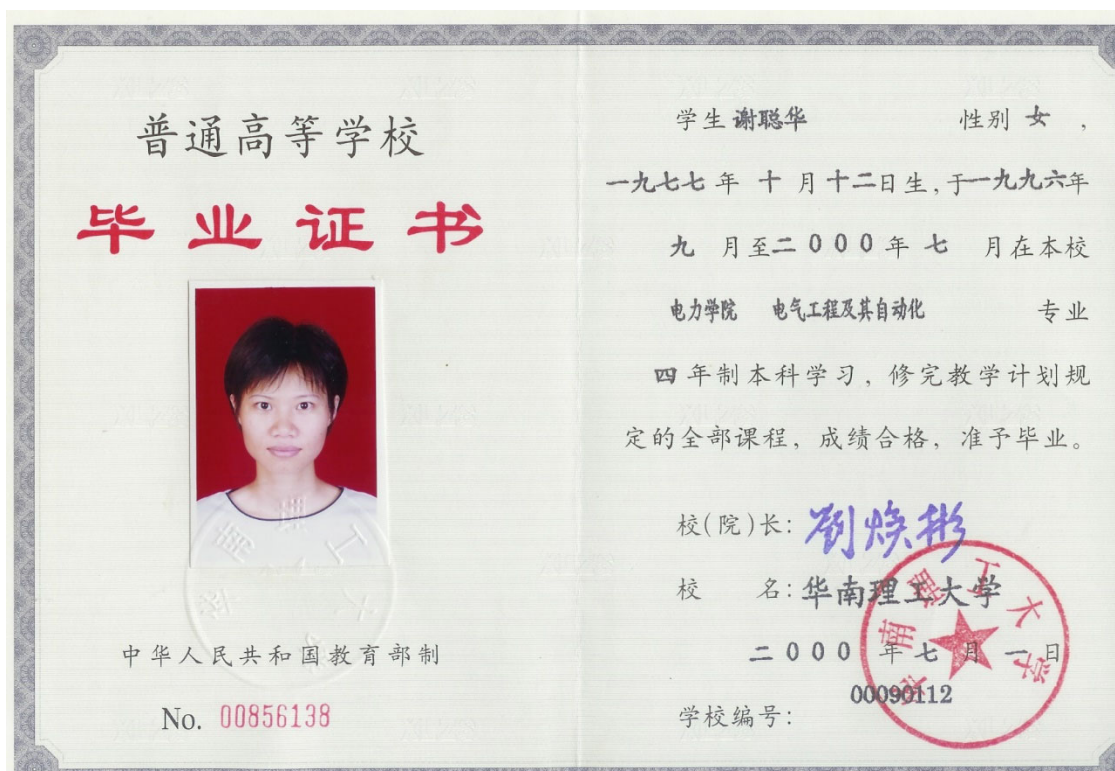 普通高等学校
毕业证书
中华人民共和国教育部制
No. 00856138
学生谢聪华 性别 女 ,
一九七七年 十 月十二日生,于一九九六年
九 月至二000年 七 月在本校
电力学院 电气工程及其自动化 专业
四年制本科学习, 修完教学计划规
定的全部课程, 成绩合格, 准予毕业。
校(院)长: 刘焕彬
校 名: 华南理工大学
二000 年七月一日
00090112
学校编号:
华南理工大学